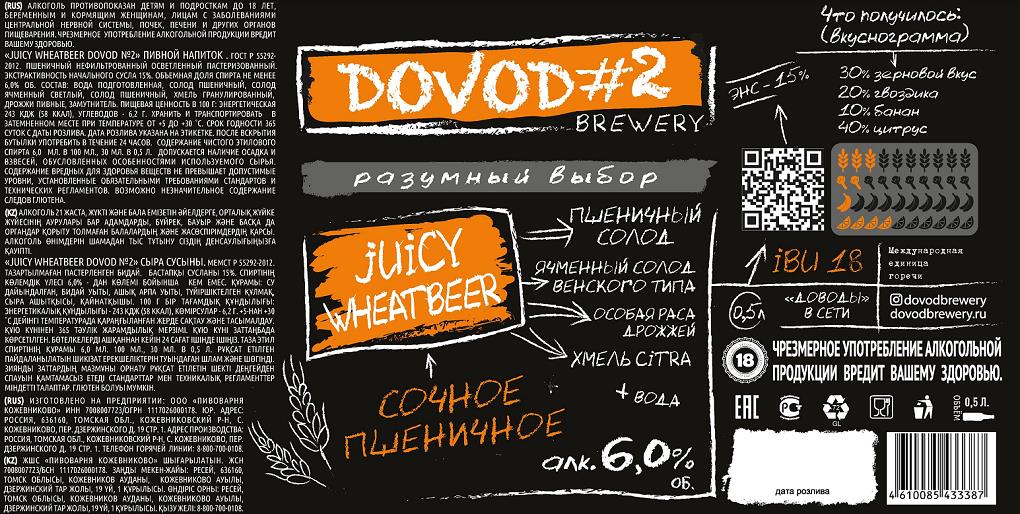 (RUS) АЛКОГОЛЬ ПРОТИВОПОКАЗАН ДЕТЯМ И ПОДРОСТКАМ ДО 18 ЛЕТ,
БЕРЕМЕННЫМ И КОРМЯЩИМ ЖЕНЩИНАМ, ЛИЦАМ С ЗАБОЛЕВАНИЯМИ
ЦЕНТРАЛЬНОЙ НЕРВНОЙ СИСТЕМЫ, ПОЧЕК, ПЕЧЕНИ И ДРУГИХ ОРГАНОВ
ПИЩЕВАРЕНИЯ. ЧРЕЗМЕРНОЕ УПОТРЕБЛЕНИЕ АЛКОГОЛЬНОЙ ПРОДУКЦИИ ВРЕДИТ
ВАШЕМУ ЗДОРОВЬЮ.
«JUICY WHEATBEER DOVOD №2» ПИВНОЙ НАПИТОК . ГОСТ Р 55292-
2012. ПШЕНИЧНЫЙ НЕФИЛЬТРОВАННЫЙ ОСВЕТЛЕННЫЙ ПАСТЕРИЗОВАННЫЙ.
ЭКСТРАКТИВНОСТЬ НАЧАЛЬНОГО СУСЛА 15%. ОБЪЕМНАЯ ДОЛЯ СПИРТА НЕ МЕНЕЕ
6,0% ОБ. СОСТАВ: ВОДА ПОДГОТОВЛЕННАЯ, СОЛОД ПШЕНИЧНЫЙ, СОЛОД
ЯЧМЕННЫЙ СВЕТЛЫЙ, СОЛОД ПШЕНИЧНЫЙ, ХМЕЛЬ ГРАНУЛИРОВАННЫЙ,
ДРОЖЖИ ПИВНЫЕ, ЗАМУТНИТЕЛЬ. ПИЩЕВАЯ ЦЕННОСТЬ В 100 Г: ЭНЕРГЕТИЧЕСКАЯ
243 КДЖ (58 ККАЛ), УГЛЕВОДОВ - 6,2 Г. ХРАНИТЬ И ТРАНСПОРТИРОВАТЬ В
ЗАТЕМНЕННОМ МЕСТЕ ПРИ ТЕМПЕРАТУРЕ ОТ +5 ДО +30 °С. СРОК ГОДНОСТИ 365
СУТОК С ДАТЫ РОЗЛИВА. ДАТА РОЗЛИВА УКАЗАНА НА ЭТИКЕТКЕ. ПОСЛЕ ВСКРЫТИЯ
БУТЫЛКИ УПОТРЕБИТЬ В ТЕЧЕНИЕ 24 ЧАСОВ. СОДЕРЖАНИЕ ЧИСТОГО ЭТИЛОВОГО
СПИРТА 6,0 МЛ. В 100 МЛ., 30 МЛ. В 0,5 Л. ДОПУСКАЕТСЯ НАЛИЧИЕ ОСАДКА И
ВЗВЕСЕЙ, ОБУСЛОВЛЕННЫХ ОСОБЕННОСТЯМИ ИСПОЛЬЗУЕМОГО СЫРЬЯ.
СОДЕРЖАНИЕ ВРЕДНЫХ ДЛЯ ЗДОРОВЬЯ ВЕЩЕСТВ НЕ ПРЕВЫШАЕТ ДОПУСТИМЫЕ
УРОВНИ, УСТАНОВЛЕННЫЕ ОБЯЗАТЕЛЬНЫМИ ТРЕБОВАНИЯМИ СТАНДАРТОВ И
ТЕХНИЧЕСКИХ РЕГЛАМЕНТОВ. ВОЗМОЖНО НЕЗНАЧИТЕЛЬНОЕ СОДЕРЖАНИЕ
СЛЕДОВ ГЛЮТЕНА.
(KZ) АЛКОГОЛЬ 21 ЖАСТА, ЖҮКТІ ЖӘНЕ БАЛА ЕМІЗЕТІН ӘЙЕЛДЕРГЕ, ОРТАЛЫҚ ЖҮЙКЕ
ЖҮЙЕСІНІҢ АУРУЛАРЫ БАР АДАМДАРДЫ, БҮЙРЕК, БАУЫР ЖӘНЕ БАСҚА ДА
ОРГАНДАР ҚОРЫТУ ТОЛМАҒАН БАЛАЛАРДЫҢ ЖӘНЕ ЖАСӨСПІРІМДЕРДІҢ ҚАРСЫ.
АЛКОГОЛЬ ӨНІМДЕРІН ШАМАДАН ТЫС ТҰТЫНУ СІЗДІҢ ДЕНСАУЛЫҒЫҢЫЗҒА
ҚАУІПТІ.
«JUICY WHEATBEER DOVOD №2» СЫРА СУСЫНЫ. МЕМСТ Р 55292-2012.
ТАЗАРТЫЛМАҒАН ПАСТЕРЛЕНГЕН БИДАЙ. БАСТАПҚЫ СУСЛАНЫ 15%. СПИРТІНІҢ
КӨЛЕМДІК ҮЛЕСІ 6,0% - ДАН КӨЛЕМІ БОЙЫНША КЕМ ЕМЕС. ҚҰРАМЫ: СУ
ДАЙЫНДАЛҒАН, БИДАЙ УЫТЫ, АШЫҚ АРПА УЫТЫ, ТҮЙІРШІКТЕЛГЕН ҚҰЛМАҚ,
СЫРА АШЫТҚЫСЫ, ҚАЙНАТҚЫШЫ. 100 Г БІР ТАҒАМДЫҚ ҚҰНДЫЛЫҒЫ:
ЭНЕРГЕТИКАЛЫҚ ҚҰНДЫЛЫҒЫ - 243 КДЖ (58 ККАЛ), КӨМІРСУЛАР - 6,2 Г. +5-НАН +30
°С ДЕЙІНГІ ТЕМПЕРАТУРАДА ҚАРАҢҒЫЛАНҒАН ЖЕРДЕ САҚТАУ ЖӘНЕ ТАСЫМАЛДАУ.
ҚҰЮ КҮНІНЕН 365 ТӘУЛІК ЖАРАМДЫЛЫҚ МЕРЗІМІ. ҚҰЮ КҮНІ ЗАТТАҢБАДА
КӨРСЕТІЛГЕН. БӨТЕЛКЕЛЕРДІ АШҚАННАН КЕЙІН 24 САҒАТ ІШІНДЕ ІШІҢІЗ. ТАЗА ЭТИЛ
СПИРТІНІҢ ҚҰРАМЫ 6,0 МЛ. 100 МЛ., 30 МЛ. В 0,5 Л. РҰҚСАТ ЕТІЛГЕН
ПАЙДАЛАНЫЛАТЫН ШИКІЗАТ ЕРЕКШЕЛІКТЕРІН ТУЫНДАҒАН ШЛАМ ЖӘНЕ ШӨГІНДІ.
ЗИЯНДЫ ЗАТТАРДЫҢ МАЗМҰНЫ ОРНАТУ РҰҚСАТ ЕТІЛЕТІН ШЕКТІ ДЕҢГЕЙДЕН
СПАУЫН ҚАМТАМАСЫЗ ЕТЕДІ СТАНДАРТТАР МЕН ТЕХНИКАЛЫҚ РЕГЛАМЕНТТЕР
МІНДЕТТІ ТАЛАПТАР. ГЛЮТЕН БОЛУЫ МҮМКІН.
(RUS) ИЗГОТОВЛЕНО НА ПРЕДПРИЯТИИ: ООО «ПИВОВАРНЯ
КОЖЕВНИКОВО» ИНН 7008007723/ОГРН 1117026000178. ЮР. АДРЕС:
РОССИЯ, 636160, ТОМСКАЯ ОБЛ., КОЖЕВНИКОВСКИЙ Р-Н, С.
КОЖЕВНИКОВО, ПЕР. ДЗЕРЖИНСКОГО Д. 19 СТР. 1. АДРЕС ПРОИЗВОДСТВА:
РОССИЯ, ТОМСКАЯ ОБЛ., КОЖЕВНИКОВСКИЙ Р-Н, С. КОЖЕВНИКОВО, ПЕР.
ДЗЕРЖИНСКОГО Д. 19 СТР. 1. ТЕЛЕФОН ГОРЯЧЕЙ ЛИНИИ: 8-800-700-0108.
(KZ) ЖШС «ПИВОВАРНЯ КОЖЕВНИКОВО» ШЫҒАРЫЛАТЫН. ЖСН
7008007723/БСН 1117026000178. ЗАҢДЫ МЕКЕН-ЖАЙЫ: РЕСЕЙ, 636160,
ТОМСК ОБЛЫСЫ, КОЖЕВНИКОВ АУДАНЫ, КОЖЕВНИКОВО АУЫЛЫ,
ДЗЕРЖИНСКИЙ ТАР ЖОЛЫ, 19 ҮЙ, 1 ҚҰРЫЛЫСЫ. ӨНДІРІС ОРНЫ: РЕСЕЙ,
ТОМСК ОБЛЫСЫ, КОЖЕВНИКОВ АУДАНЫ, КОЖЕВНИКОВО АУЫЛЫ,
ДЗЕРЖИНСКИЙ ТАР ЖОЛЫ, 19 ҮЙ, 1 ҚҰРЫЛЫСЫ. ҚЫЗУ ЖЕЛІ: 8-800-700-0108.
DOVOD#2
BREWERY
разумный выбор
JUiCY
WHEATBEER
ПШЕНИЧНЫЙ
СОЛОД
ЯЧМЕННЫЙ СОЛОД
ВЕНСКОГО ТИПА
ОСОБАЯ РАСА
ДРОЖЖЕЙ
ХМЕЛЬ CiTRA
+ ВОДА
СОЧНОЕ
ПШЕНИЧНОЕ
алк. 6,0%
ОБ.
Что получилось:
(вкуснограмма)
ЭНС - 15%
30% зерновой вкус
20% гвоздика
10% банан
40% цитрус
iBU 18
Международная
единица
горечи
0,5 л
«ДОВОДЫ»
В СЕТИ
dovodbrewery
dovodbrewery.ru
18
ЧРЕЗМЕРНОЕ УПОТРЕБЛЕНИЕ АЛКОГОЛЬНОЙ
ПРОДУКЦИИ ВРЕДИТ ВАШЕМУ ЗДОРОВЬЮ.
EAC
72
GL
ОБЪЕМ
0,5 Л.
дата розлива
4 610085 433387